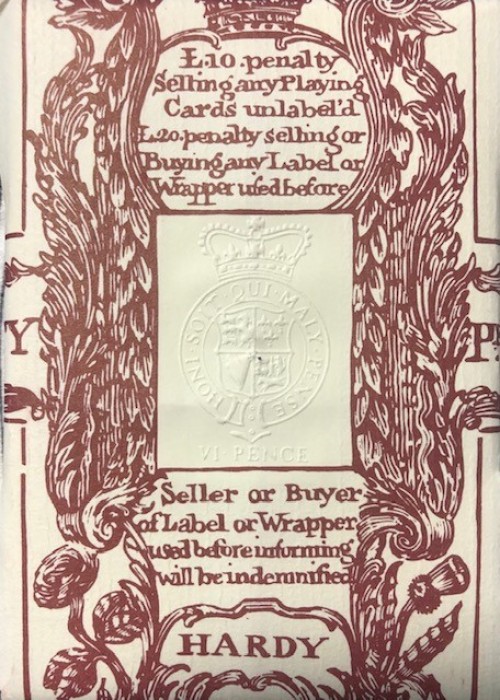 £.10. penalty
Selling any Playing
Cards unlabel'd
£.20. penalty selling or
Buying any Label or
Wrapper used before
HONI SOIT QUI MALY PENSE
VI PENCE
Y
P
Seller or Buyer
of Label or Wrapper
used before informing
will be indemnified
HARDY